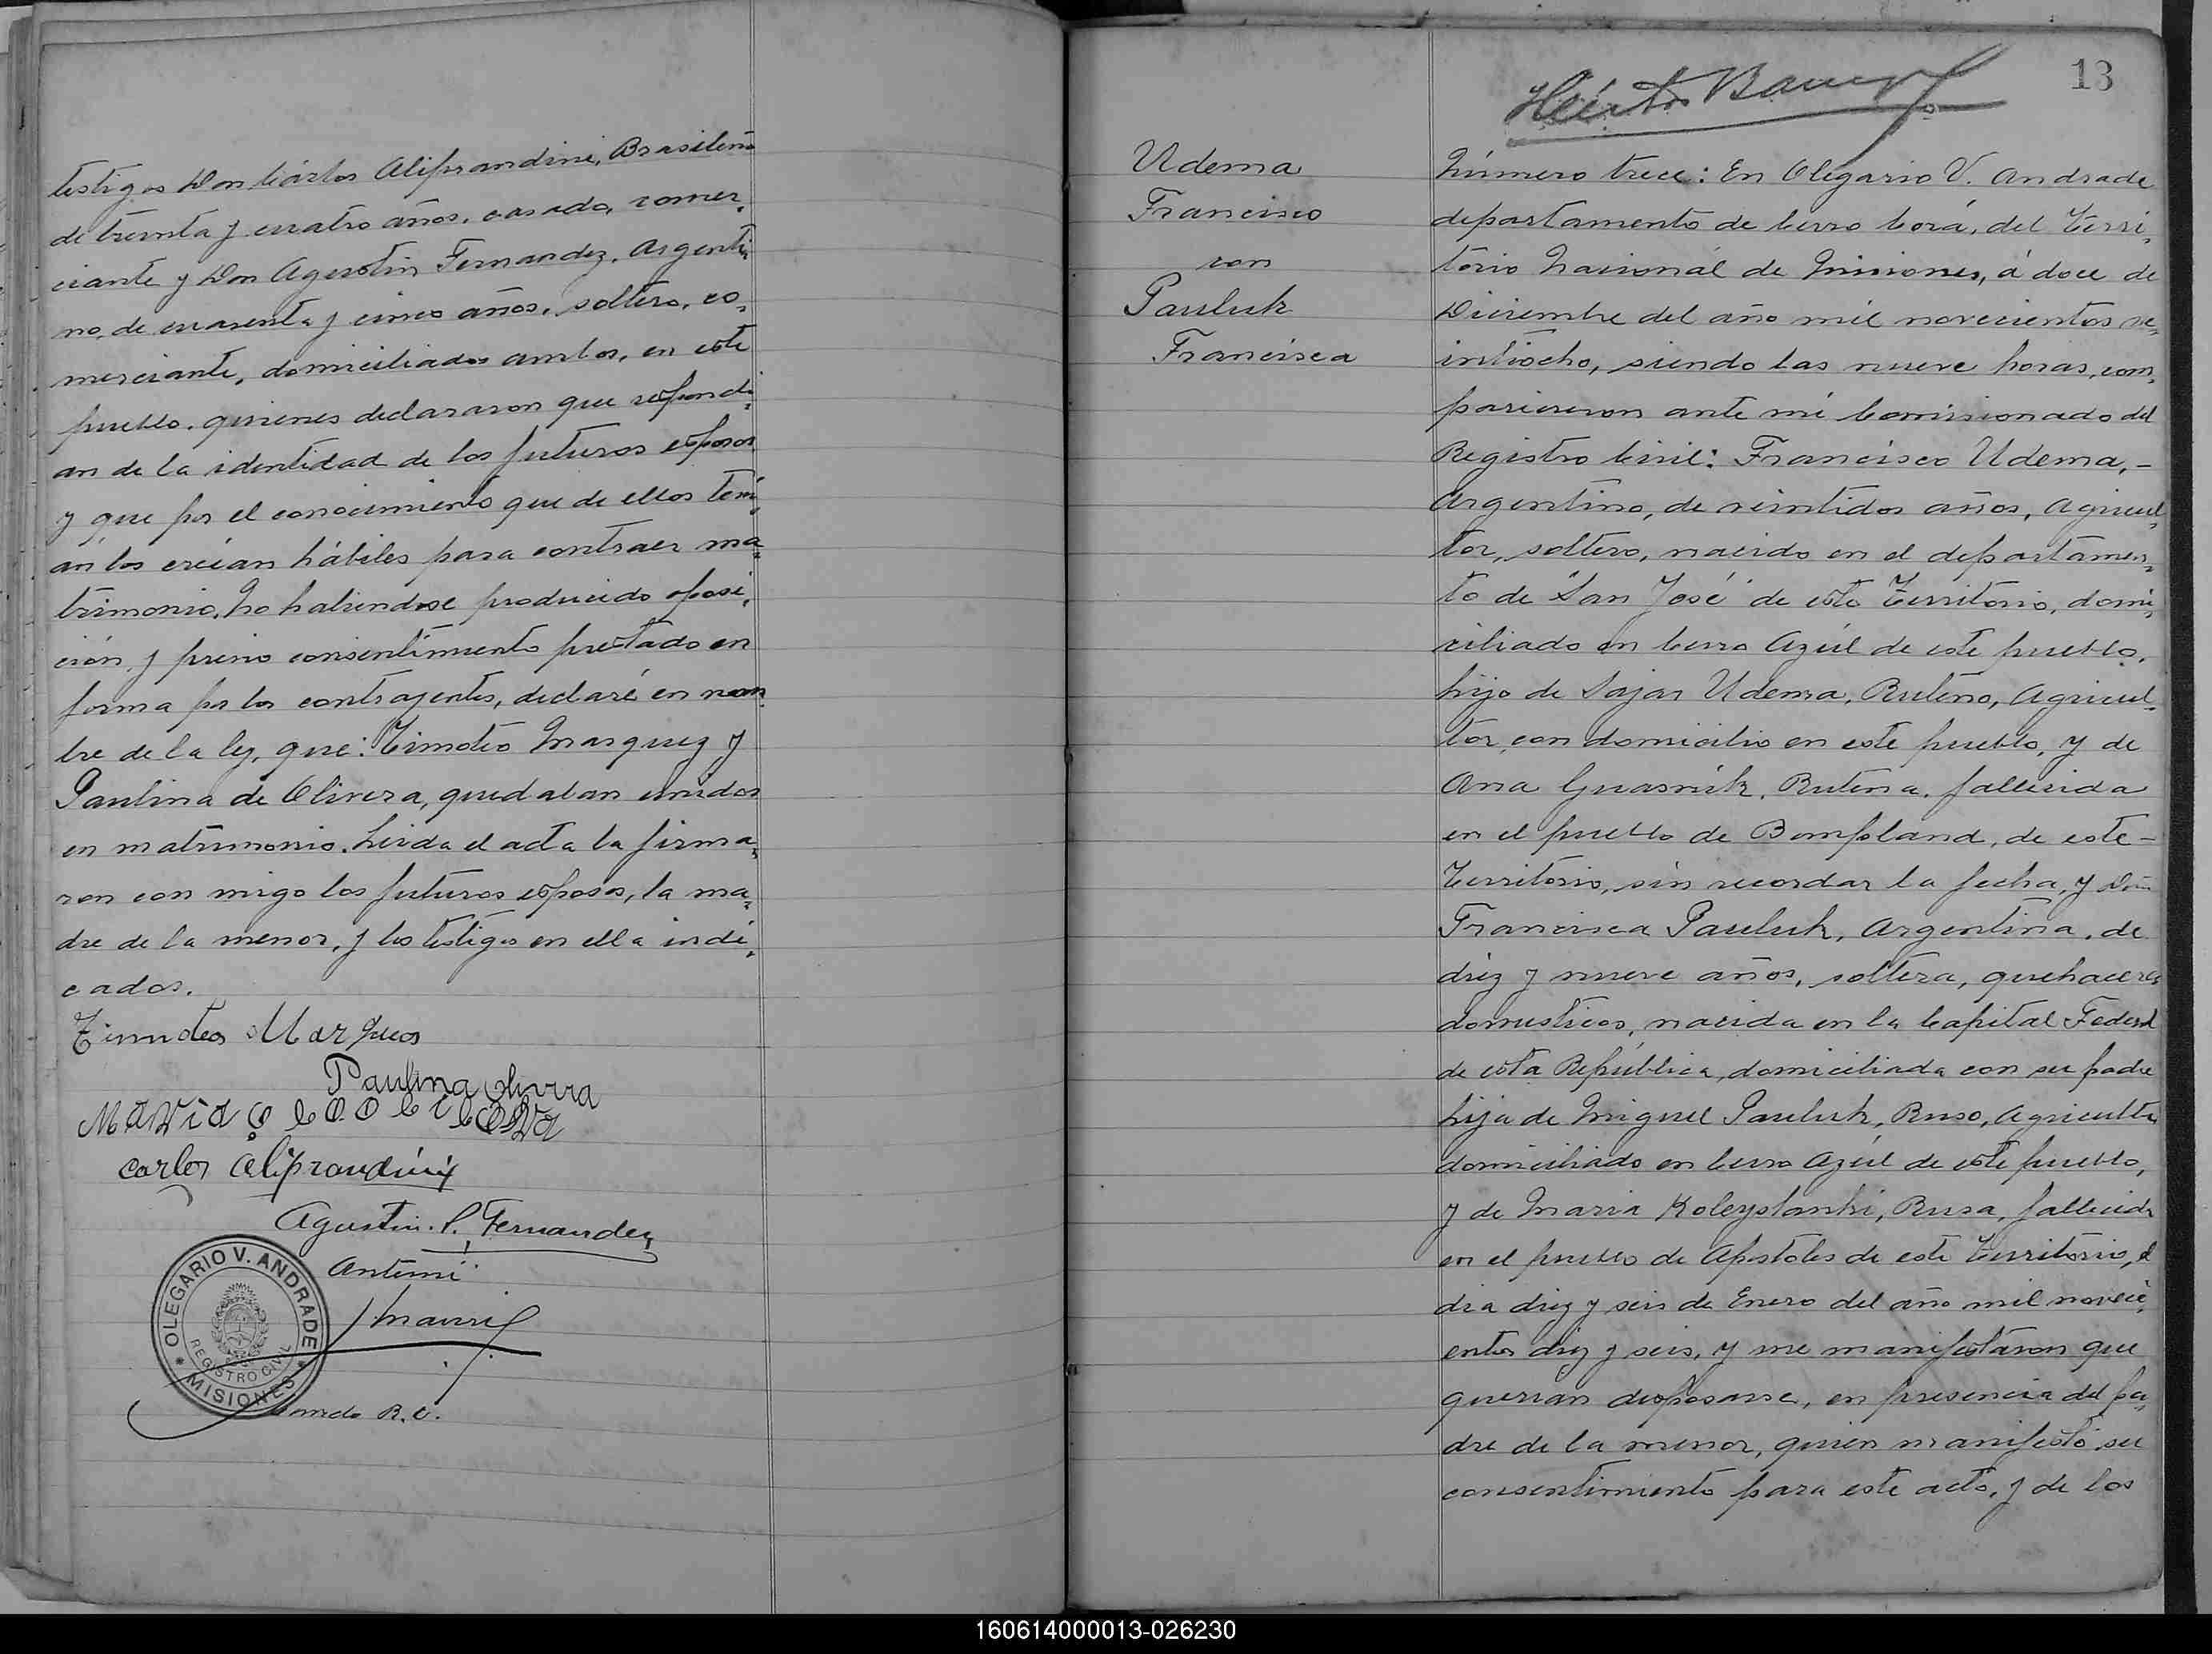 testigos Don Cárlos Aliprandini, Brasileño
de treinta y cuatro años, casado, comer,
ciante y Don Agustin Fernandez, Argenti,
no, de cuarenta y cinco años, soltero, co,
merciante, domiciliados ambos, en este
pueblo, quienes declararon que respondi,
an de la identidad de los futuros esposos
y que por el conocimiento que de ellos tení,
an los creian hábiles para contraer ma,
trimonio. No habiendose producido oposi,
ción, y previo consentimiento prestado en
forma por los contrayentes, declaré en nom
bre de la ley, que: Timoteo Marquez y
Paulina de Olivera, quedaban unidos
en matrimonio. Leida el acta la firma,
ron con migo los futuros esposos, la ma,
dre de la menor, y los testigos en ella indi,
cados.
Timoteo Marques
Paulina Olivera
Maria
Carlos Aliprandini
Agustin P. Fernandez
Antemi
OLEGARIO V. ANDRADE
REGISTRO CIVIL
* MISIONES *
R.C.
13
Udema
Francisco
con
Pauluk
Francisca
Número trece: En Olegario V. Andrade
departamento de Cerro Corá, del Terri,
torio Nacionál de Misiones, á doce de
Diciembre del año mil novecientos ve,
intiocho, siendo las nueve horas, com,
parecieron ante mi Comisionado del
Registro Civil: Francisco Udema, -
Argentino, de veintidos años, Agricul,
tor, soltero, nacido en el departamen,
to de "San José" de este Territorio, domi,
ciliado en Cerro Azúl de este pueblo,
hijo de Sajar Udema, Ruteno, Agricul,
tor, con domicilio en este pueblo, y de
Ana Guasnik, Rutena, fallecida
en el pueblo de Bompland, de este -
Territorio, sin recordar la fecha, y Doña
Francisca Pauluk, Argentina, de
diez y nueve años, soltera, quehaceres
domesticos, nacida en la Capital Federal
de esta República, domiciliada con su padre
hija de Miguel Pauluk, Ruso, Agricultor
domiciliado en Cerro Azúl de este pueblo,
y de Maria Koleyslanki, Rusa, fallecida
en el pueblo de Apostoles de este Territorio, el
dia diez y seis de Enero del año mil noveci,
entos diez y seis, y me manifestaron que
querian desposarse, en presencia del pa,
dre de la menor, quien manifestó su
consentimiento para este acto, y de los
160614000013-026230